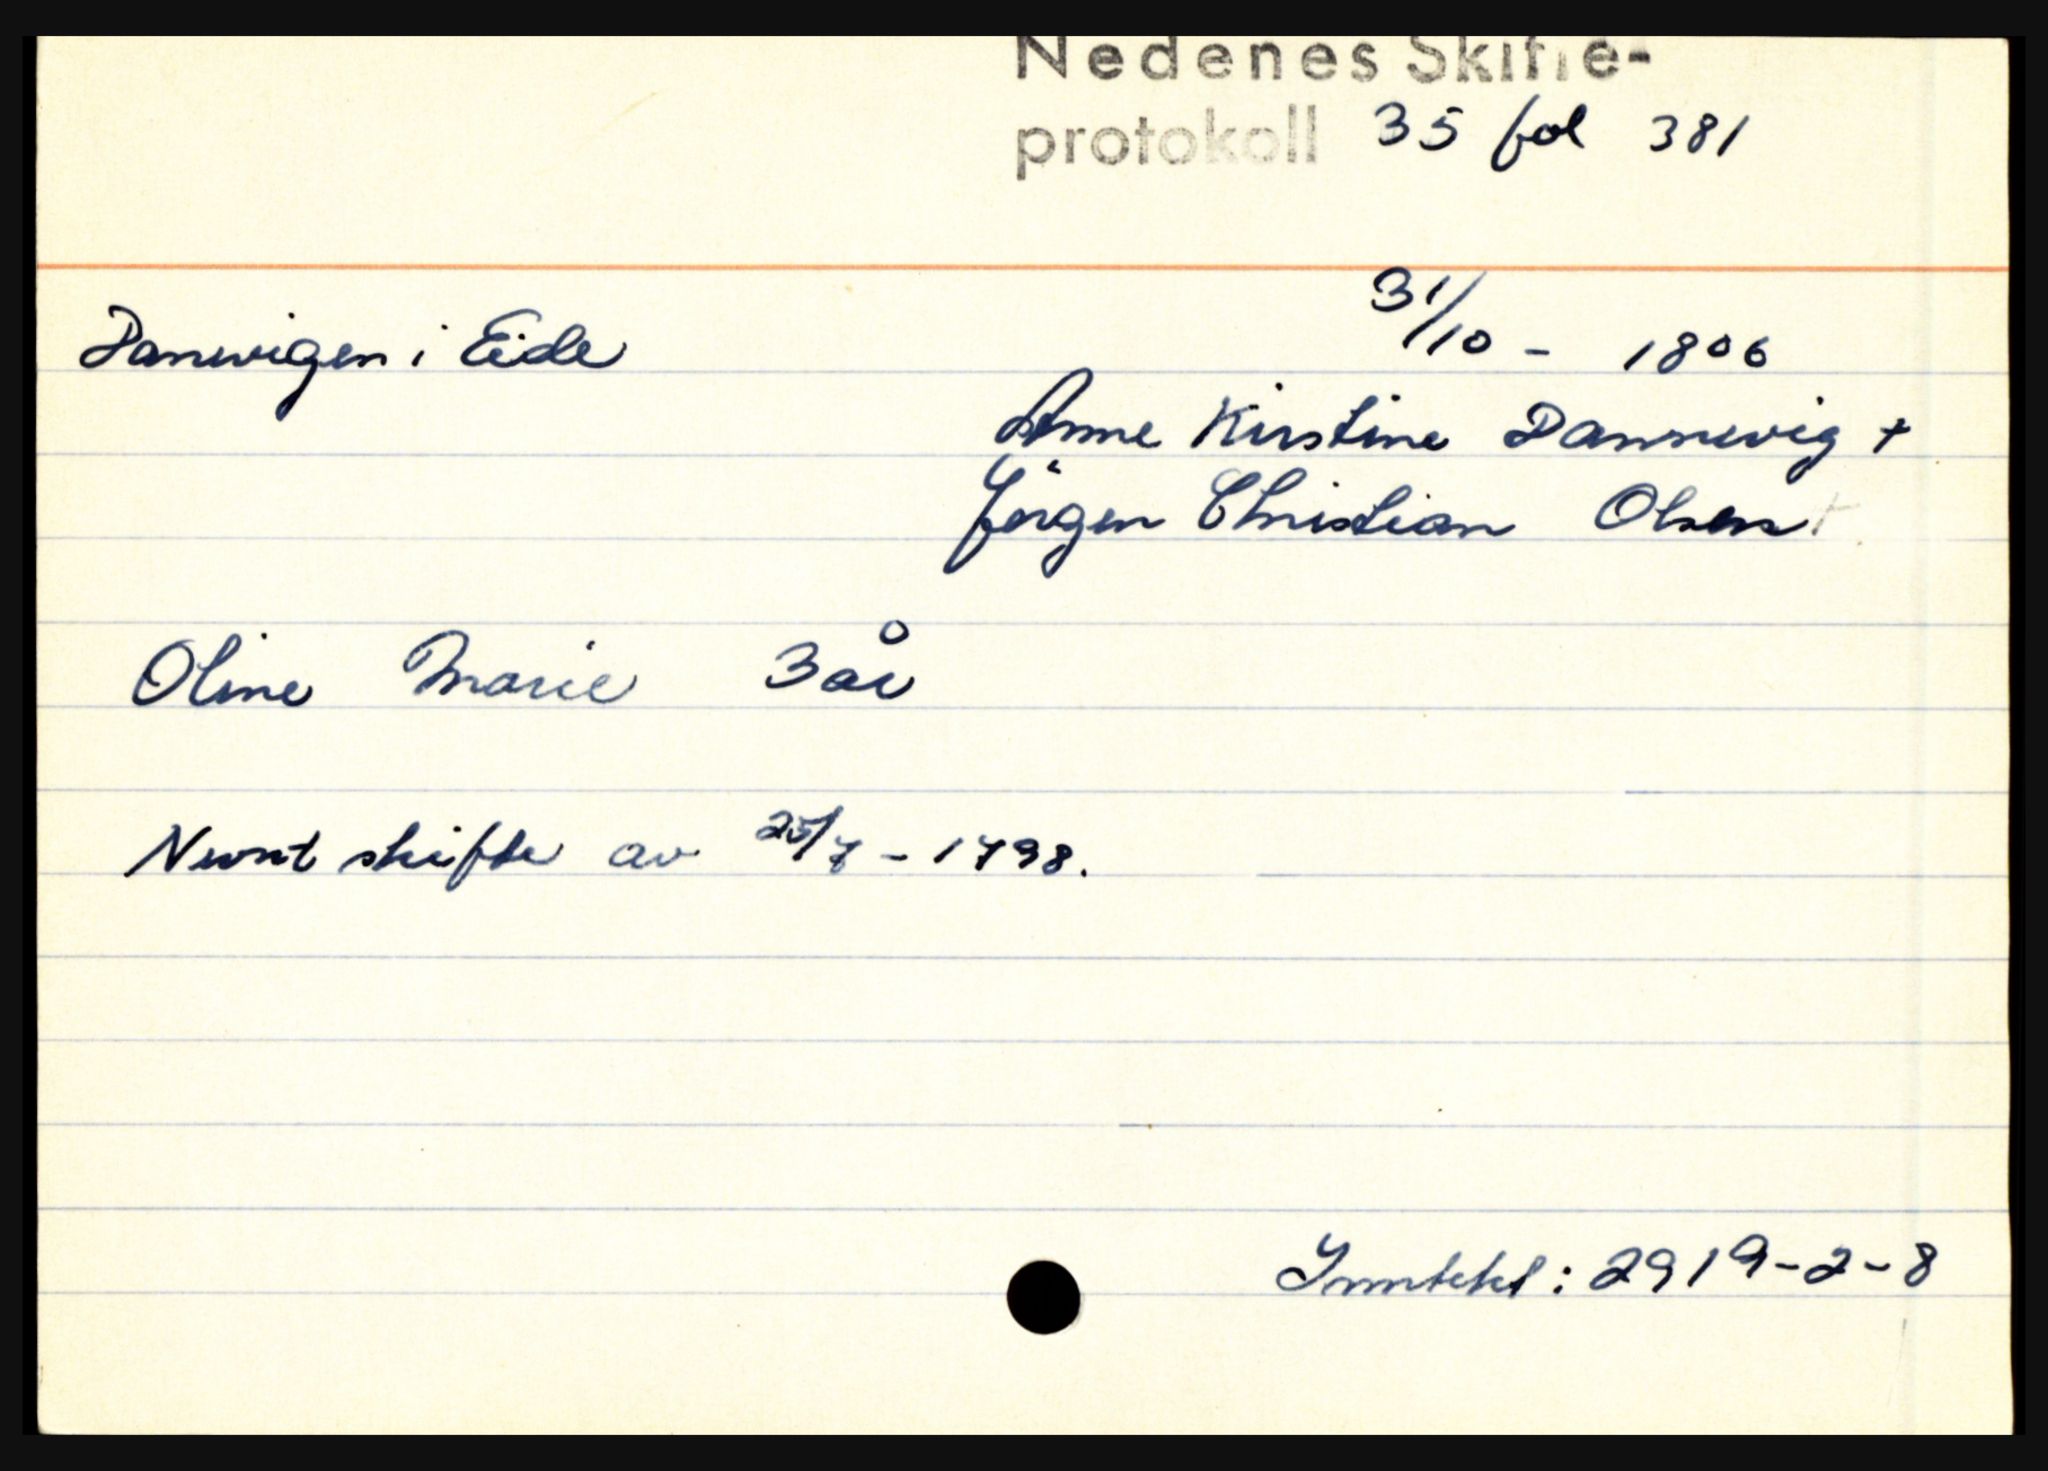 Nedenes Skifte-
protokoll 35 fol 381
31/10 - 1806
Danevigen i Eide
Anne Kirstine Dannevig +
Jörgen Christian Olsen +
Oline Marie 3 år
Nevnt skifte av 25/7 - 1798.
Inntekt : 2919-2-8